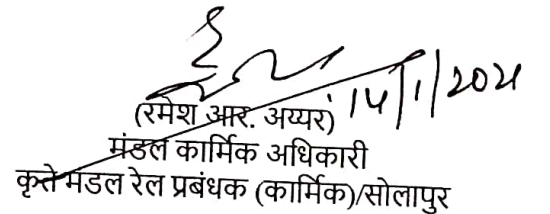 14/1/2021
(रमेश आर. अय्यर)
मंडल कार्मिक अधिकारी
कृते मंडल रेल प्रबंधक (कार्मिक)/सोलापुर